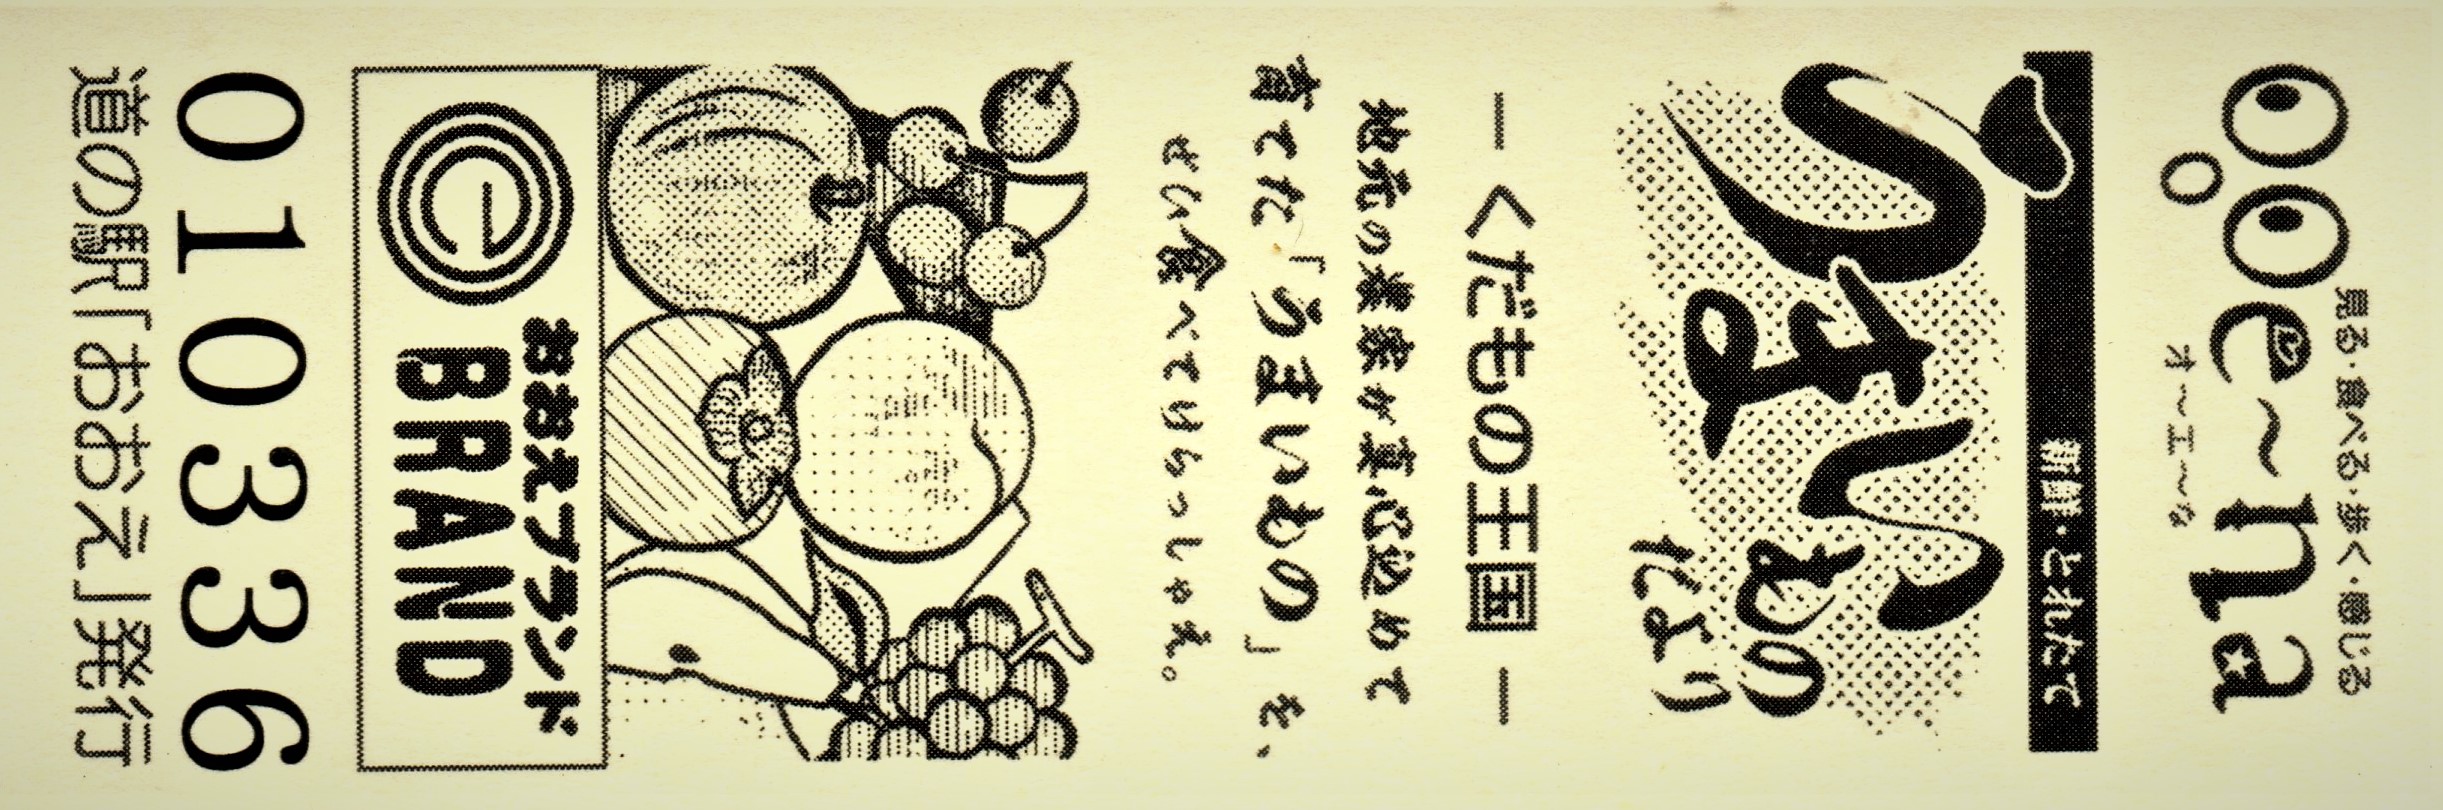 見る・食べる・歩く・感じる
ooe~na
オ〜エ〜な
新鮮・とれたて
うまいもの
だより
― くだもの王国 ―
地元の農家が真心込めて
育てた「うまいもの」を、
e
おおえブランド
BRAND
010336
道の駅「おおえ」発行